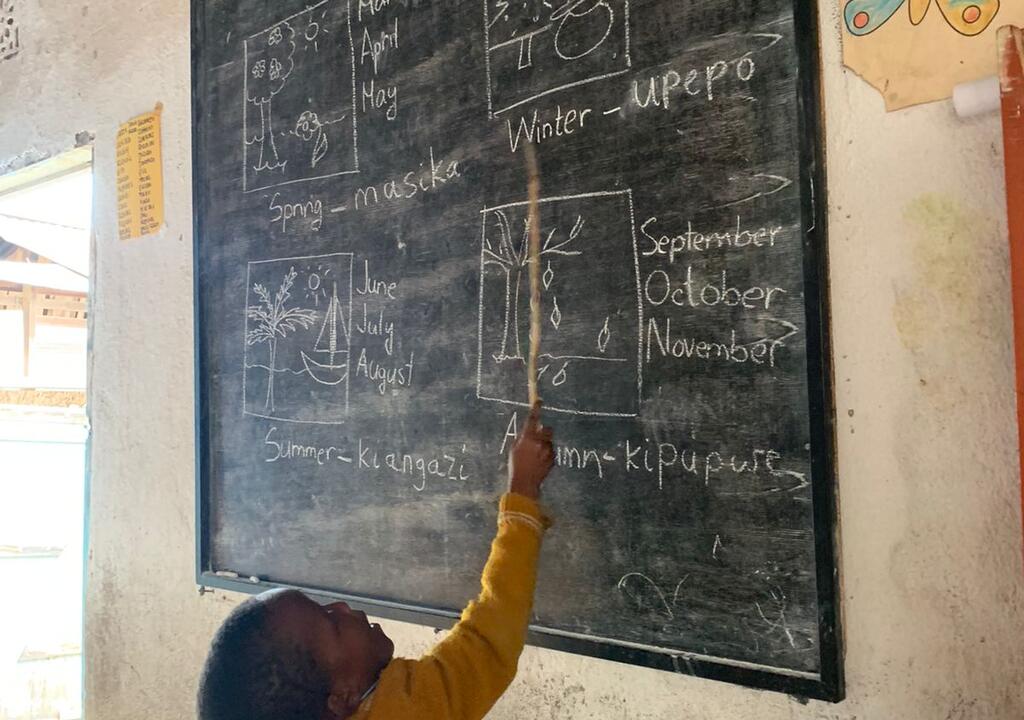 April
May
Spring - masika
Winter - upepo
June
July
August
Summer - kiangazi
September
October
November
kipupwe